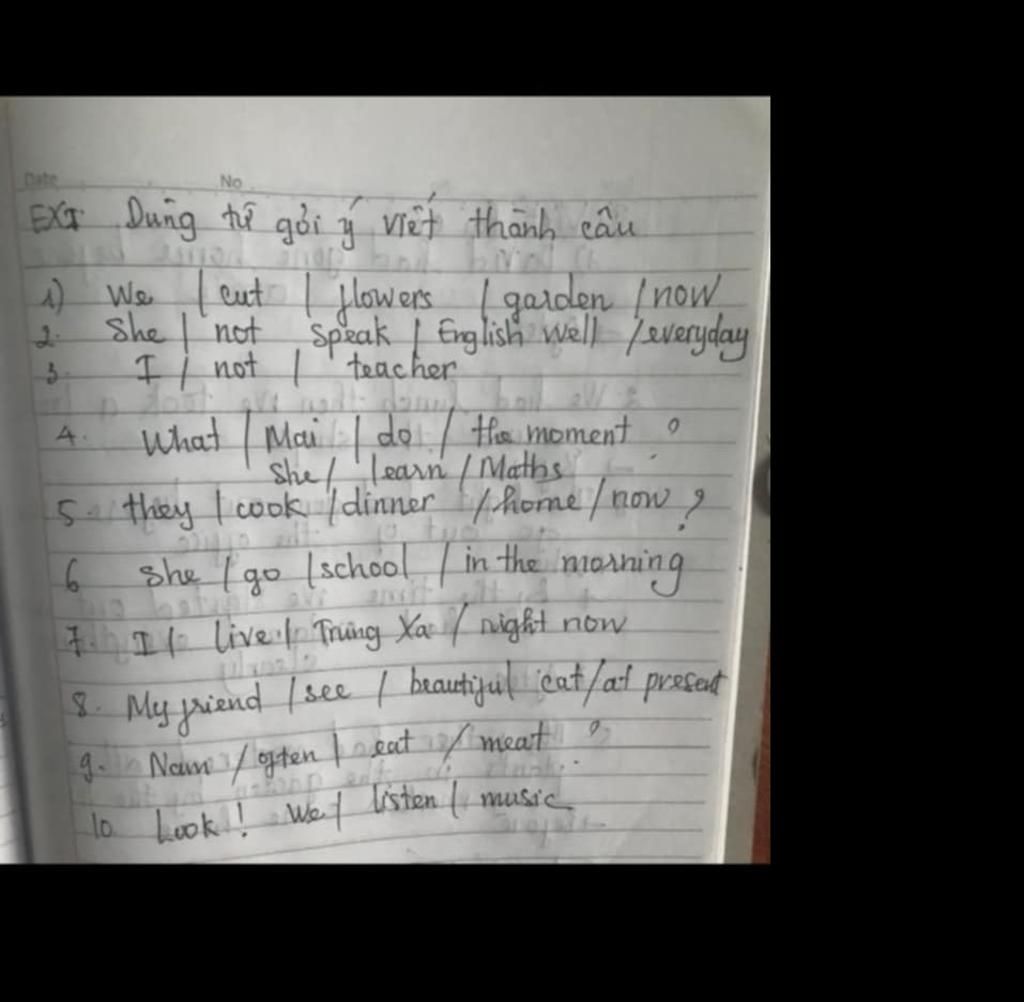 Date No
EXI Dùng từ gởi ý viết thành câu
1) We / cut / flowers / garden / now
2. She / not speak / English well / everyday
3. I / not / teacher
4. What / Mai / do / the moment ?
She / learn / Maths
5. they / cook / dinner / home / now ?
6 She / go / school / in the morning
7. I / live / Trung Xa / right now
8. My friend / see / beautiful cat / at present
9. Nam / often / eat / meat ?
10 Look ! We / listen / music